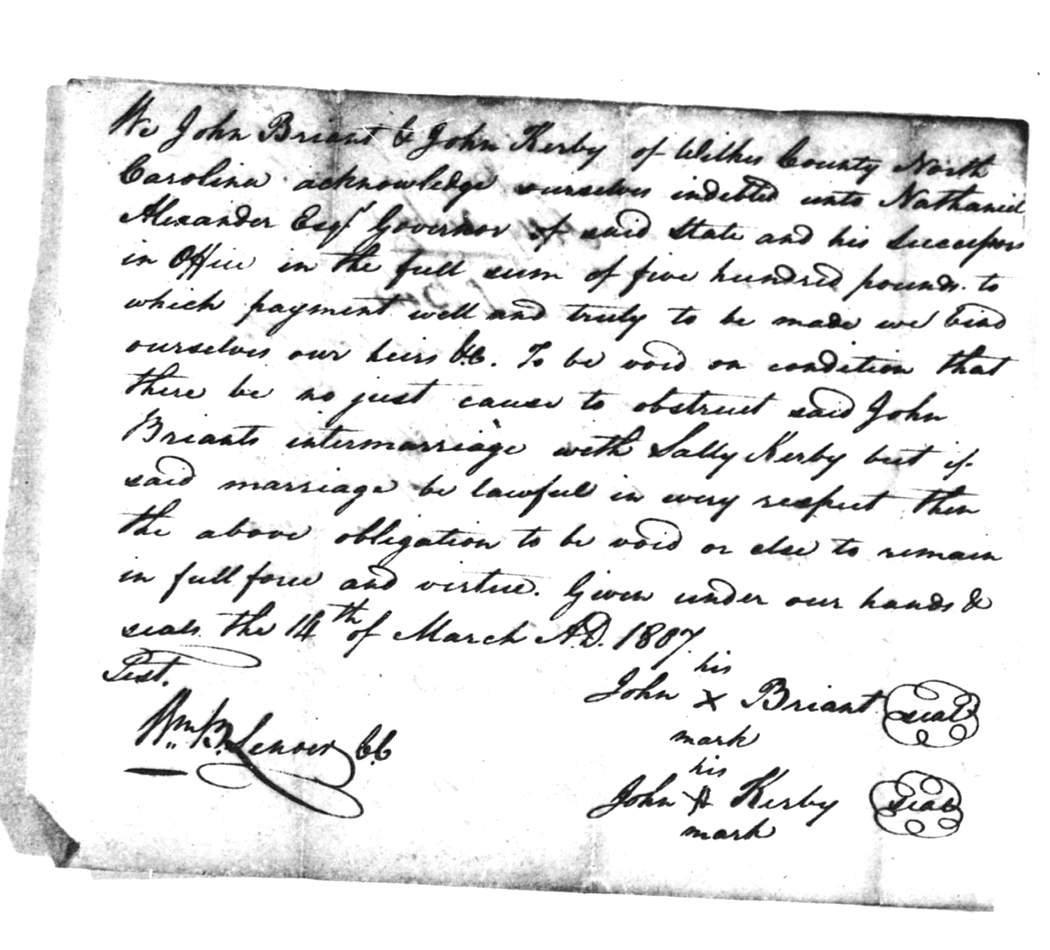 We John Briant & John Kerby of Wilkes County North
Carolina acknowledge ourselves indebted unto Nathaniel
Alexander Esqr. Governor of said State and his Successors
in Office in the full sum of five hundred pounds to
which payment well and truly to be made we bind
ourselves our heirs &c. To be void on condition that
there be no just cause to obstruct said John
Briants intermarriage with Sally Kerby but if
said marriage be lawful in every respect then
the above obligation to be void or else to remain
in full force and virtue. Given under our hands &
seals the 14th of March A.D. 1807.
Test.
Wm. B. Lenoir CC
his
John X Briant seal
mark
his
John Kerby seal
mark